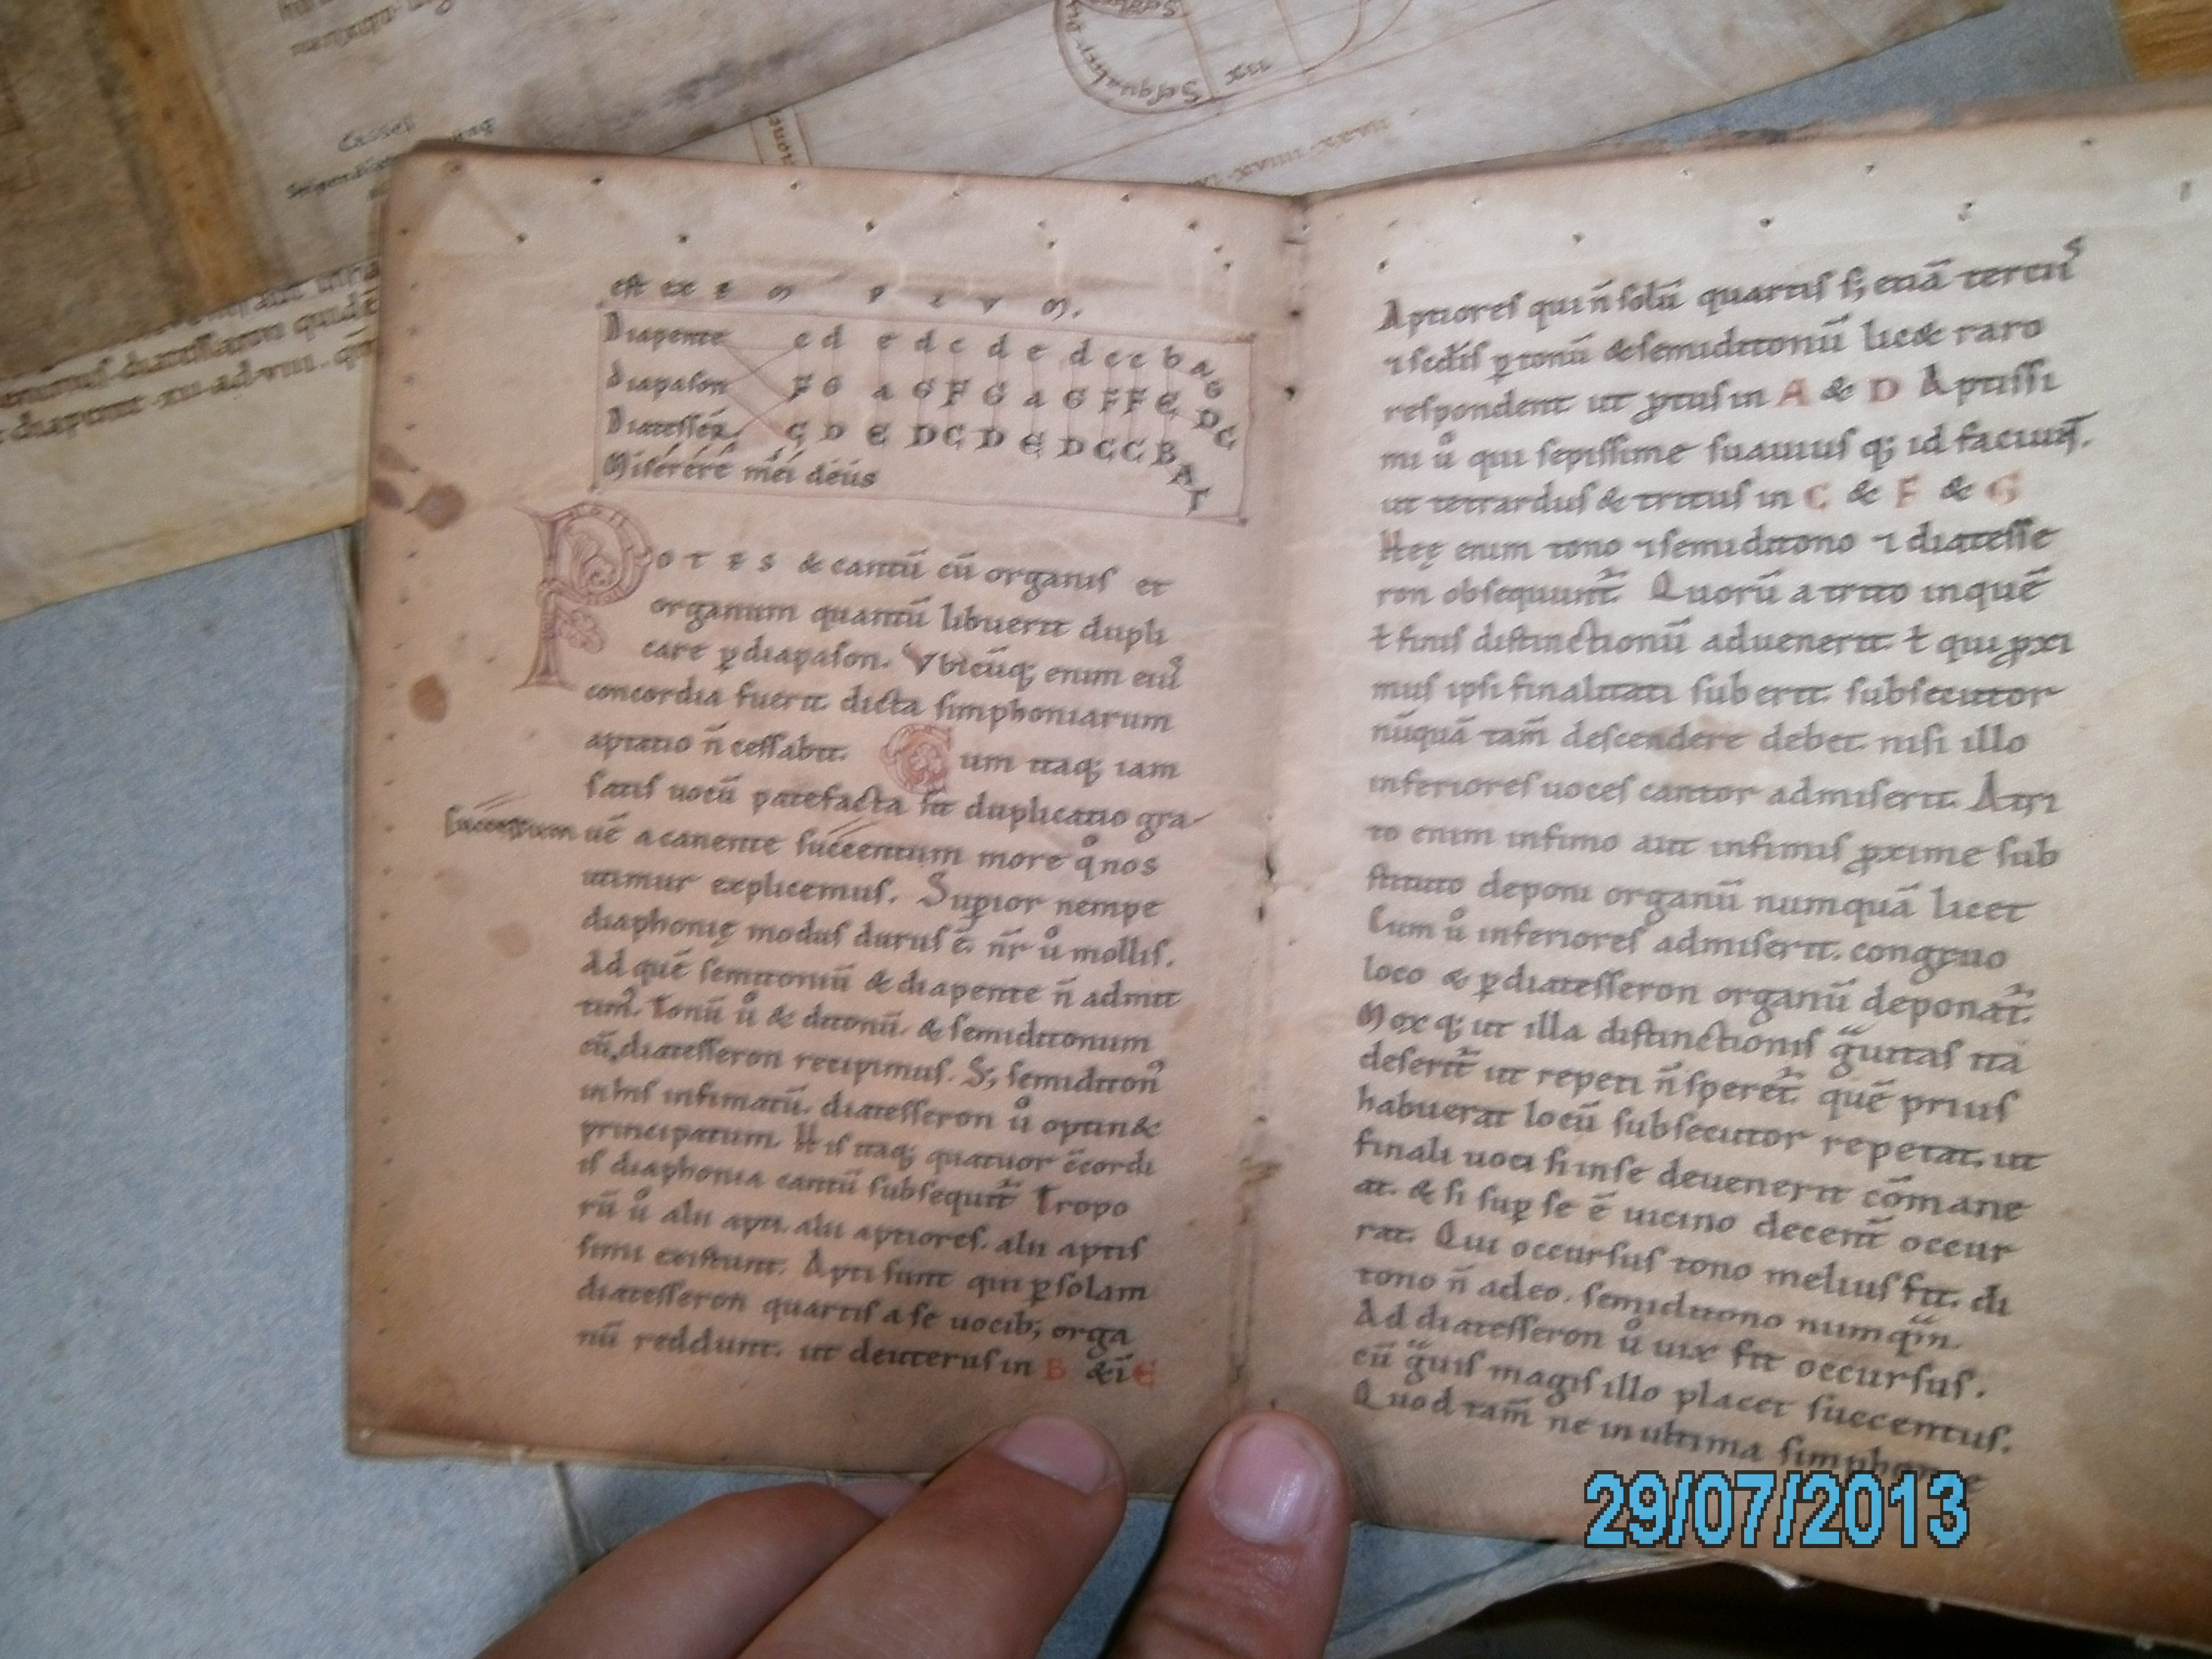 est ex e m p l u m.
Diapente c d e d c d e d c c b a G
diapason F G a G F G a G F F E D C
Diatessar̄ C D E D C D E D C C B A Γ
Miserere mei deus
POTES & cantū cū organis et
organum quantū libuerit dupli
care ꝑ diapason. Vbicūq; enim eiꝰ
concordia fuerit. dicta simphoniarum
aptatio n̄ cessabit. Cum itaq; iam
satis uocū patefacta sit duplicatio gra
uē a canente succentum more qͦ nos
utimur explicemus. Suꝑior nempe
diaphonię modus durus ē. nr̄ ů mollis.
Ad quē semitoniū & diapente n̄ admit
timꝰ. Tonū ů & ditonū. & semiditonum
cū diatesseron recipimus. S; semiditonꝰ
in his infimatū. diatesseron ů optin&
principatum. His itaq; quatuor c̄cordi
is diaphonia cantū subsequit᷑ Tropo
rū ů alii apti. alii aptiores. alii aptis
simi existunt. Apti sunt qui ꝑ solam
diatesseron quartis a se uocib; orga
nū reddunt. ut deuterus in B & ī E
Aptiores qui n̄ solū quartis s; etiā terciis
⁊ sedis ꝑ tonū & semiditonū lic& raro
respondent ut ꝓtus in A & D Aptissi
mi ů qui sepissime suauius q; id faciunt̄.
ut tetrardus & tritus in C & F & G
Hęę enim tono ⁊ semiditono ⁊ diatesse
ron obsequunt᷑. Quorū a trito in quē
ł finis distinctionū aduenerit. ł qui ꝓxi
mus ipsi finalitati suberit. subsecutor
nūquā tam̄ descendere debet. nisi illo
inferiores uoces cantor admiserit. A tri
to enim infimo aut infimis ꝓxime sub
stituto deponi organū numquā licet
Cum ů inferiores admiserit. congruo
loco & ꝑ diatesseron organū deponat᷑.
Mox q; ut illa distinctionis g̃uitas ita
deserit᷑ ut repeti n̄ speret᷑. quē prius
habuerat locū subsecutor repetat. ut
finali uoci si in se deuenerit cōmane
at. & si suꝑ se ē uicino decent᷑ occur
rat. Qui occursus tono melius fit. di
tono n̄ adeo. semiditono numq̄m.
Ad diatesseron ů uix fit occursus.
cū g̃uis magis illo placet succentus.
Quod tam̄ ne in ultima simphonie
29/07/2013